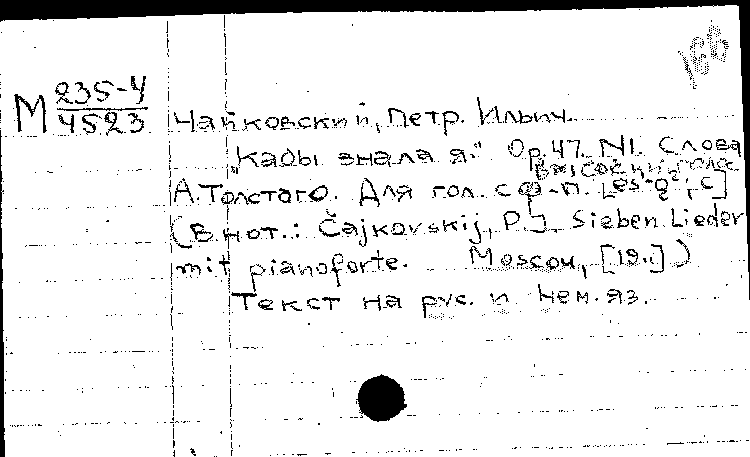 166
М 235-4
4523
Чайковский, Петр. Ильич.
"Кабы знала я." Ор.47. N1. Слова
высокий голос
А.Толстого. Для гол. с ф-п. [es¹-g²; c]
(В нот.: Čajkovskij, P.] Sieben Lieder
mit pianoforte. Moscou, [19..])
Текст на рус. и нем. яз.